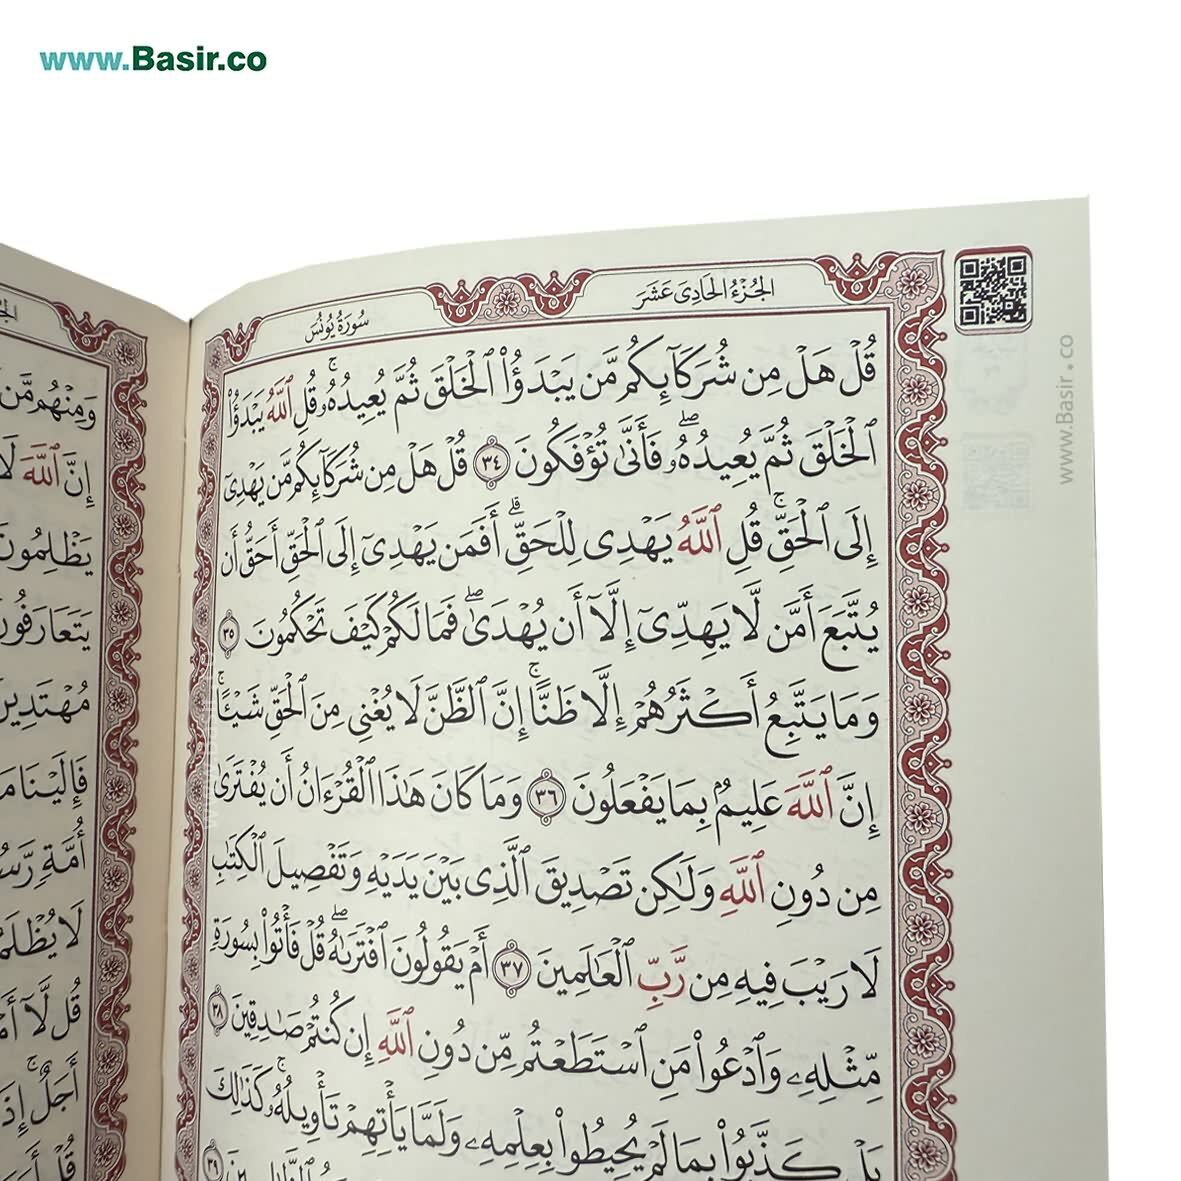 www.Basir.co
الجُزْءُ الحَادِى عَشَرَ
سُورَةُ يُونُسَ
قُلْ هَلْ مِن شُرَكَآئِكُم مَّن يَبْدَؤُا۟ ٱلْخَلْقَ ثُمَّ يُعِيدُهُۥ ۚ قُلِ ٱللَّهُ يَبْدَؤُا۟
ٱلْخَلْقَ ثُمَّ يُعِيدُهُۥ ۖ فَأَنَّىٰ تُؤْفَكُونَ ٣٤ قُلْ هَلْ مِن شُرَكَآئِكُم مَّن يَهْدِىٓ
إِلَى ٱلْحَقِّ ۚ قُلِ ٱللَّهُ يَهْدِى لِلْحَقِّ ۗ أَفَمَن يَهْدِىٓ إِلَى ٱلْحَقِّ أَحَقُّ أَن
يُتَّبَعَ أَمَّن لَّا يَهِدِّىٓ إِلَّآ أَن يُهْدَىٰ ۖ فَمَا لَكُمْ كَيْفَ تَحْكُمُونَ ٣٥
وَمَا يَتَّبِعُ أَكْثَرُهُمْ إِلَّا ظَنًّا ۚ إِنَّ ٱلظَّنَّ لَا يُغْنِى مِنَ ٱلْحَقِّ شَيْـًٔا ۚ
إِنَّ ٱللَّهَ عَلِيمٌۢ بِمَا يَفْعَلُونَ ٣٦ وَمَا كَانَ هَٰذَا ٱلْقُرْءَانُ أَن يُفْتَرَىٰ
مِن دُونِ ٱللَّهِ وَلَٰكِن تَصْدِيقَ ٱلَّذِى بَيْنَ يَدَيْهِ وَتَفْصِيلَ ٱلْكِتَٰبِ
لَا رَيْبَ فِيهِ مِن رَّبِّ ٱلْعَٰلَمِينَ ٣٧ أَمْ يَقُولُونَ ٱفْتَرَىٰهُ ۖ قُلْ فَأْتُوا۟ بِسُورَةٍ
مِّثْلِهِۦ وَٱدْعُوا۟ مَنِ ٱسْتَطَعْتُم مِّن دُونِ ٱللَّهِ إِن كُنتُمْ صَٰدِقِينَ ٣٨
بَلْ كَذَّبُوا۟ بِمَا لَمْ يُحِيطُوا۟ بِعِلْمِهِۦ وَلَمَّا يَأْتِهِمْ تَأْوِيلُهُۥ ۚ كَذَٰلِكَ
٣٩
www.Basir.co
وَمِنْهُم مَّن
إِنَّ ٱللَّهَ لَا
يَظْلِمُونَ
يَتَعَارَفُونَ
مُهْتَدِينَ
فَإِلَيْنَا مَ
أُمَّةٍ رَّسُ
لَا يُظْلَمُ
قُل لَّآ أَمْ
أَجَلٌ ۚ إِذَ
قُلْ أَرَءَ